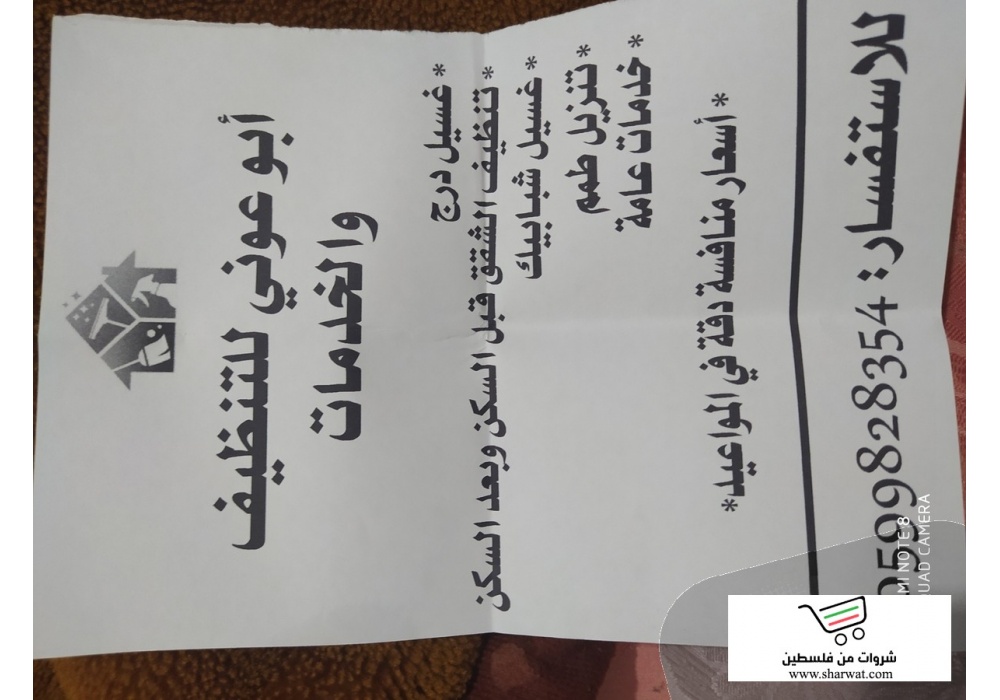 أبو عوني للتنظيف
والخدمات
* غسيل درج
* تنظيف الشقق قبل السكن وبعد السكن
* غسيل شبابيك
* تنزيل طمم
* خدمات عامة
* أسعار منافسة دقة في المواعيد*
للاستفسار: 0599828354
MI NOTE 8
UAD CAMERA
شروات من فلسطين
www.sharwat.com